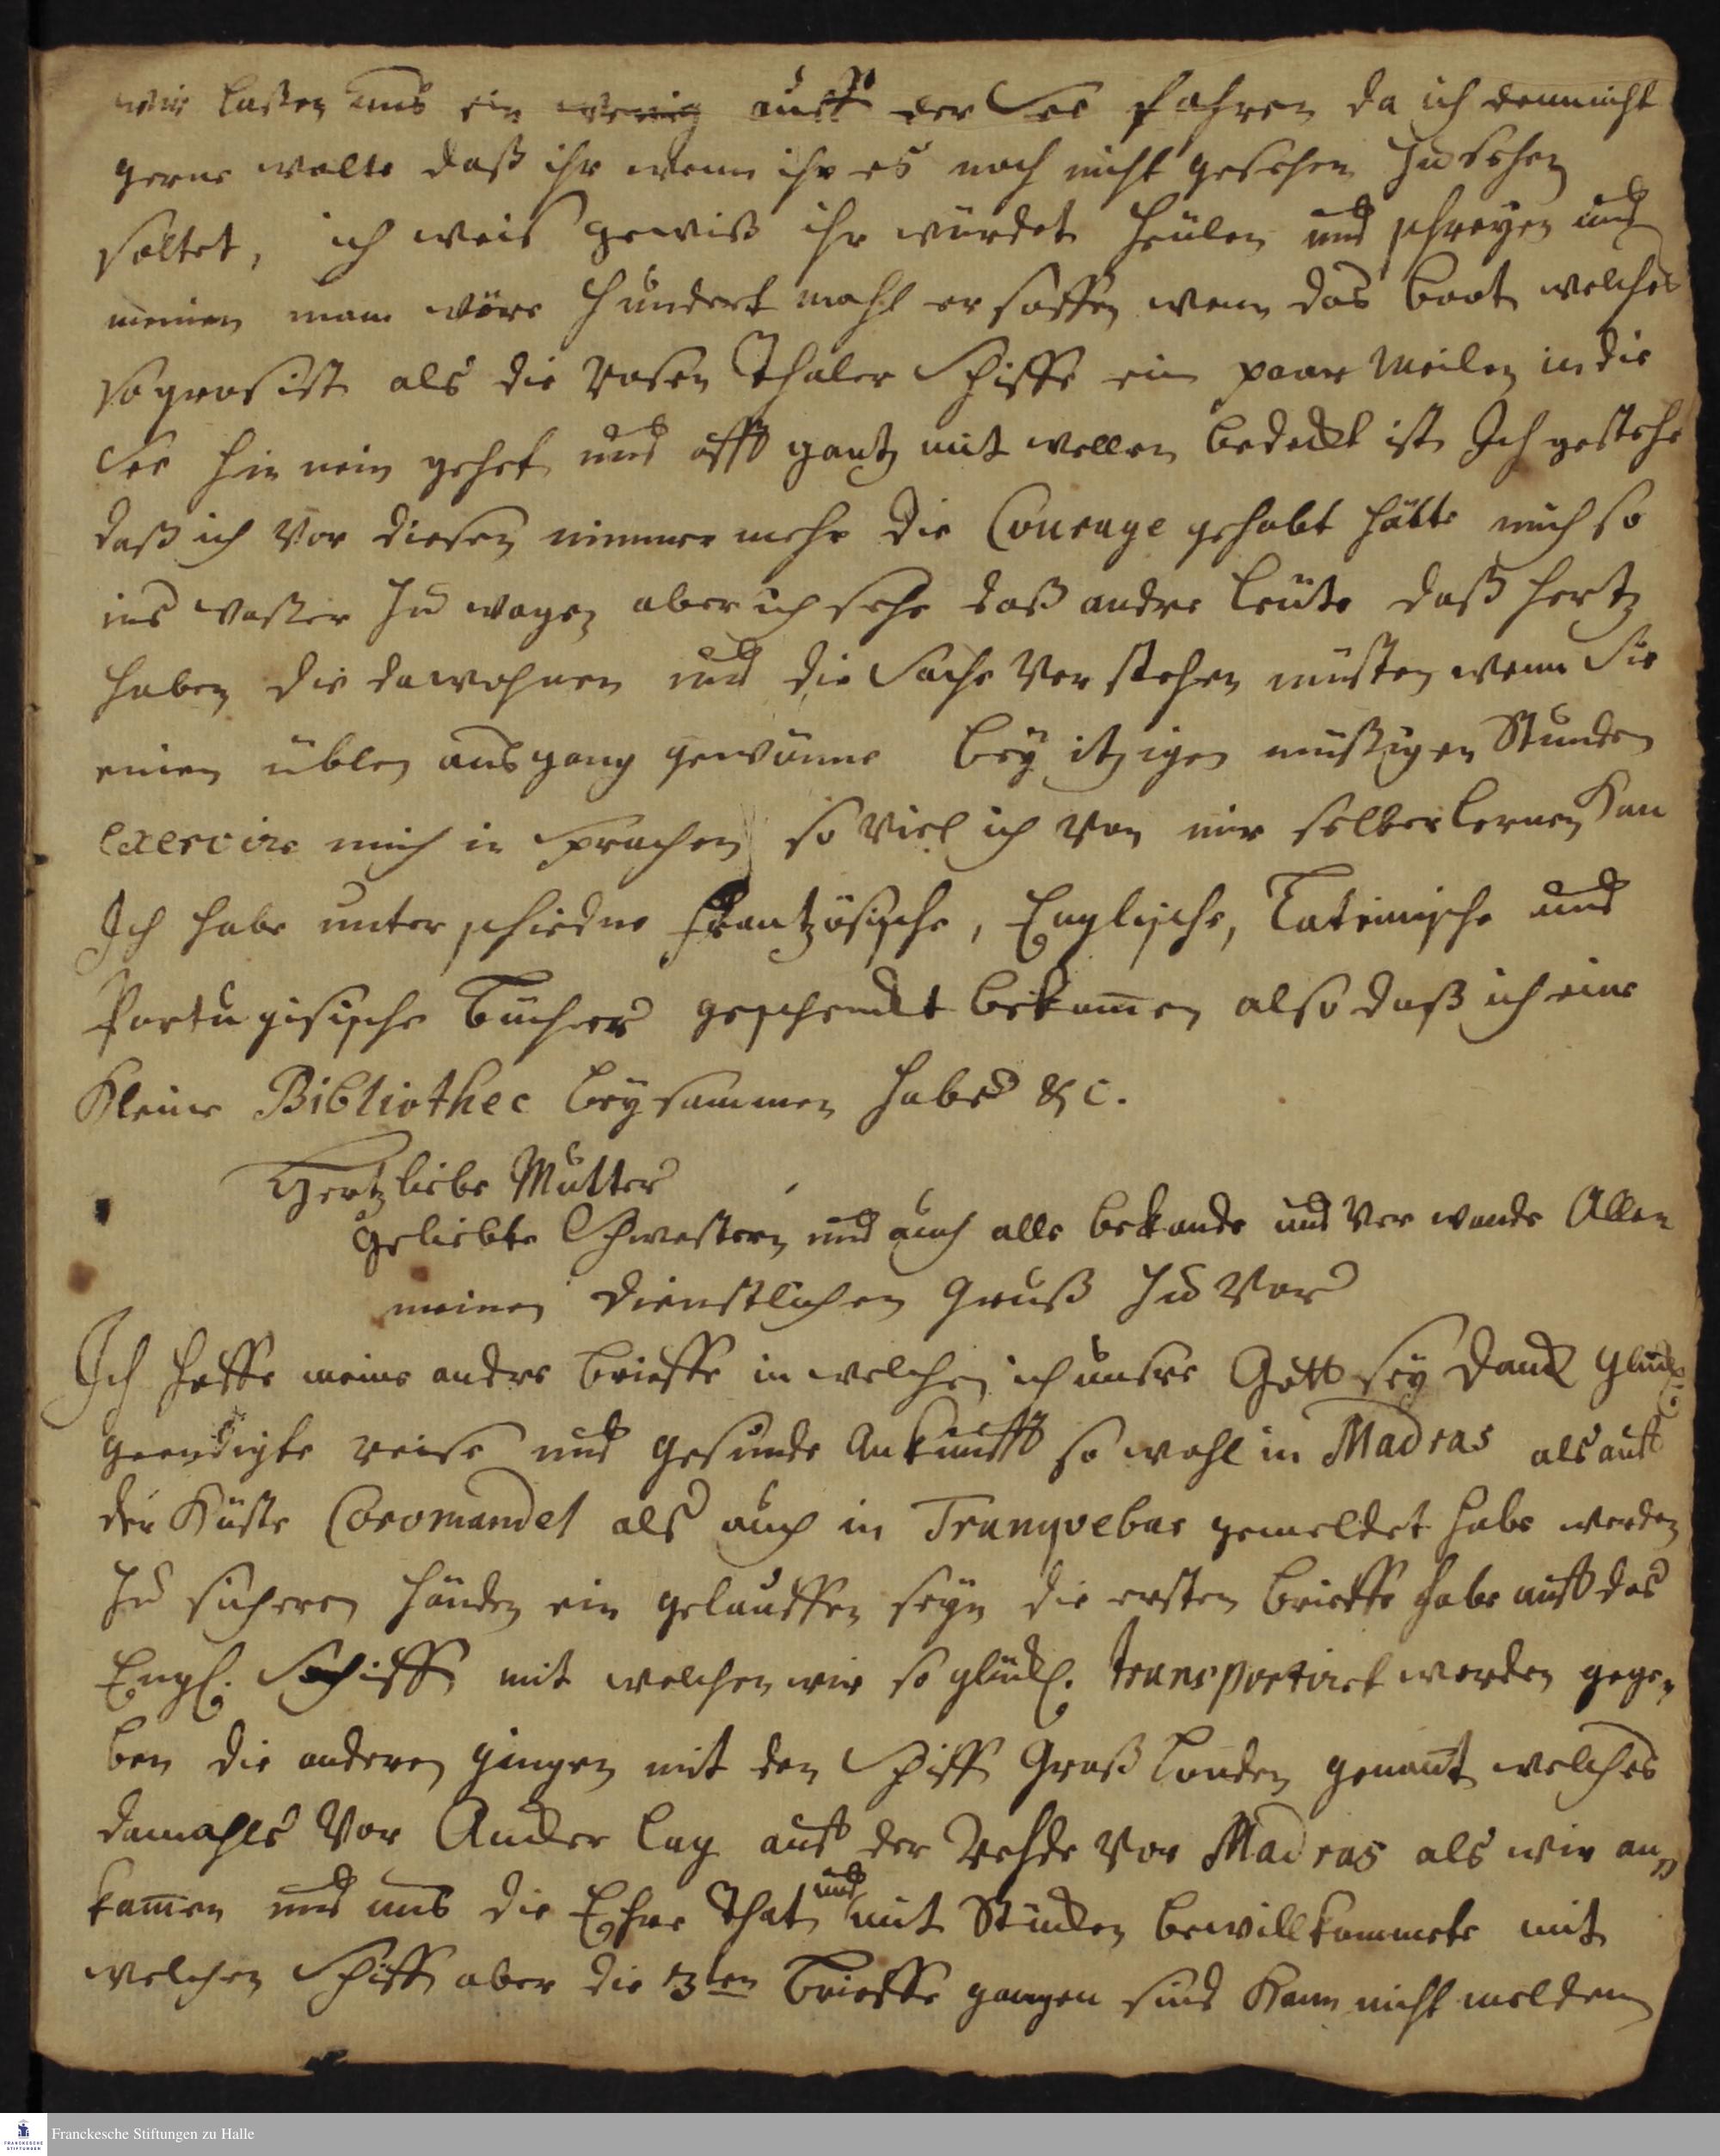 wir laßen uns ein wenig auff der See fahren da ich denn nicht
gerne wolte daß ihr wenn ihr es noch nicht gesehen zu sehen
soltet, ich weis gewiß ihr würdet heülen und schreyen und
meinen man wäre hundert mahl ersoffen wenn das boot welches
so gros ist als die Rosen Thaler Schiffe ein paar Meilen in die
See hin nein gehet und offt gantz mit wellen bedeckt ist Ich gestehe
daß ich vor diesen nimmer mehr die Courage gehabt hätte mich so
ins waßer zu wagen aber ich sehe daß andre leüte daß hertz
haben die da wohnen und die Sache ver stehen müsten wenn Sie
einen üblen ausgang gewünne bey itzigen müßigen Stunden
exercire mich in Sprachen so viel ich von mir selber lernen kan
Ich habe unter schiedne frantzösische, Englische, Lateinische und
Portugisische Bücher geschenckt bekom̄en also daß ich eine
kleine Bibliothec beysammen habe &c.
Hertzliebe Mutter
geliebte Schwestern und auch alle bekande und ver wande Allen
meinen dienstlichen Gruß zu vor
Ich hoffe meine andre brieffe in welchen ich unsre Gott sey danck glückl.
geendigte reise und gesunde Ankunfft so wohl in Madras als auff
der Küste Coromandel als auch in Tranqvebar gemeldet habe werden
zu sicheren händen ein gelauffen seyn die ersten brieffe habe auff das
Engl. Schiff mit welchen wir so glückl. transportiret worden gege„
ben die anderen gingen mit den Schiff Groß Londen genan̄t welches
damahls vor Ancker lag auff der Rehde vor Madras als wir an„
kam̄en und uns die Ehre that und mit Stücken bewillkommete mit
welchen Schiff aber die 3ten Brieffe gangen sind kann nicht melden
Franckesche Stiftungen zu Halle
FRANCKESCHE
STIFTUNGEN